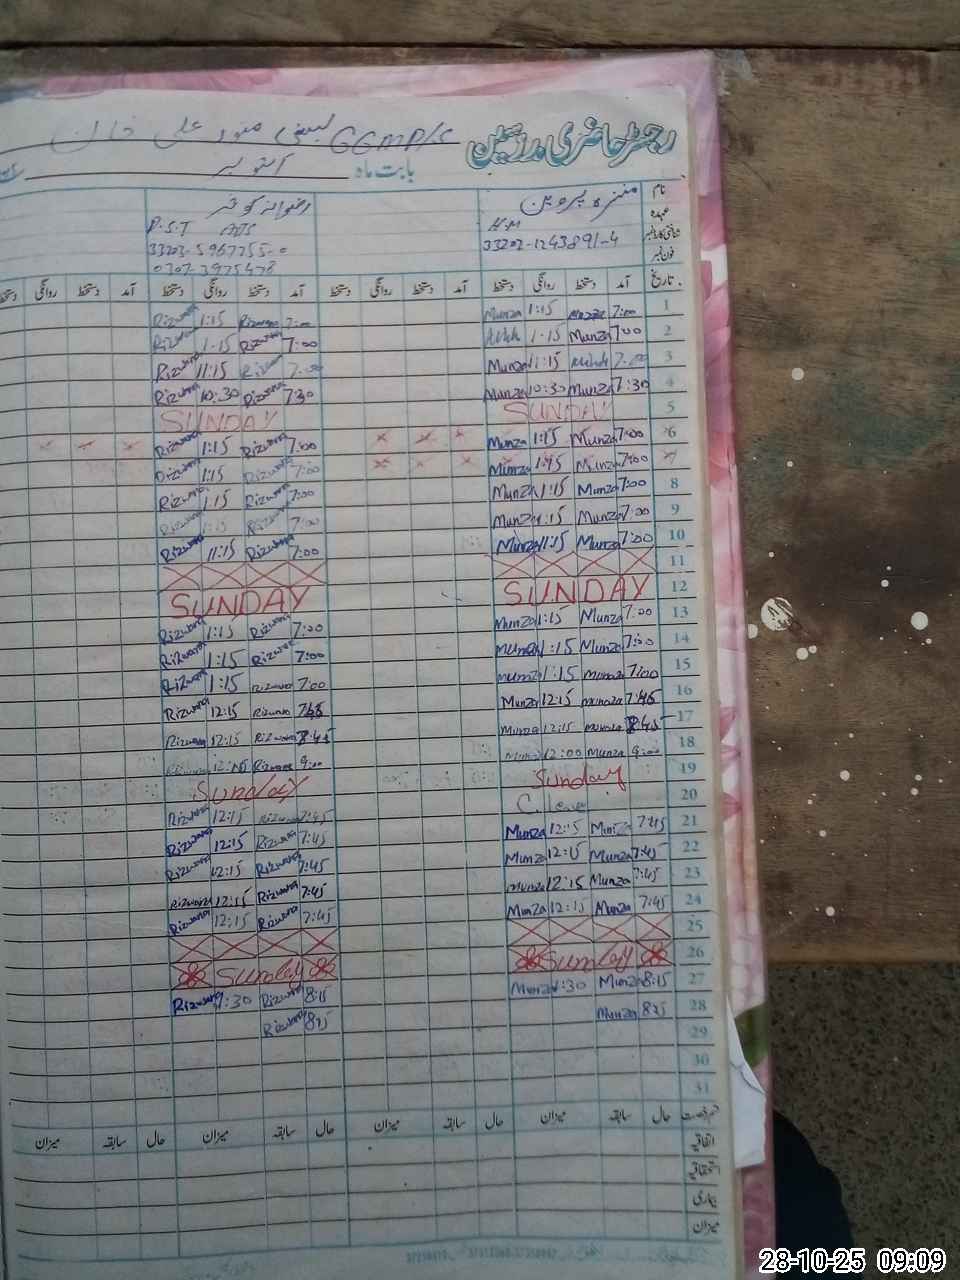 رجسٹر حاضری مدرسین GGMP/S بستی منور علی خان
بابت ماہ اکتوبر
نام منزہ پروین رضوانہ کوثر
عہدہ H.M P.S.T
شناختی کارڈ نمبر 33202-1243891-4 33203-5967755-0
فون نمبر 0307-3975478
تاریخ آمد دستخط روانگی دستخط آمد دستخط روانگی دستخط آمد دستخط روانگی دستخط آمد دستخط روانگی دستخط
1 7:00 1:15 Munza 7:00 Rizwana 1:15 Rizwana
2 7:00 Munza 1:15 7:00 Rizwana 1:15 Rizwana
3 7:00 1:15 Munza 7:00 Rizwana 1:15 Rizwana
4 7:30 Munza 10:30 Munza 7:30 Rizwana 10:30 Rizwana
5 SUNDAY SUNDAY
6 7:00 Munza 1:15 Munza 7:00 Rizwana 1:15 Rizwana
7 7:00 Munza 1:15 Munza 7:00 Rizwana 1:15 Rizwana
8 7:00 Munza 1:15 Munza 7:00 Rizwana 1:15 Rizwana
9 7:00 Munza 1:15 Munza 7:00 Rizwana 1:15 Rizwana
10 7:00 Munza 1:15 Munza 7:00 Rizwana 1:15 Rizwana
11
12 SUNDAY SUNDAY
13 7:00 Munza 1:15 Munza 7:00 Rizwana 1:15 Rizwana
14 7:00 Munza 1:15 Munza 7:00 Rizwana 1:15 Rizwana
15 7:00 Munaza 1:15 Munza 7:00 Rizwana 1:15 Rizwana
16 7:45 Munaza 12:15 Munza 7:45 Rizwana 12:15 Rizwana
17 8:45 Munaza 12:15 Munza 8:45 Rizwana 12:15 Rizwana
18 9:00 Munza 12:00 Munza 9:00 Rizwana Rizwana
19 Sunday SUNDAY
20 C. leave 7:45 Rizwana 12:15 Rizwana
21 7:45 Munza 12:15 Munza 7:45 Rizwana 12:15 Rizwana
22 7:45 Munza 12:15 Munza 7:45 Rizwana 12:15 Rizwana
23 7:45 Munza 12:15 Munza 7:45 Rizwana 12:15 Rizwana
24 7:45 Munza 12:15 Munza 7:45 Rizwana 12:15 Rizwana
25
26 Sunday Sunday
27 8:15 Munza 1:30 Munza 8:15 Rizwana 1:30 Rizwana
28 815 Munza 815 Rizwana
29
30
31
قسم رخصت حال سابقہ میزان حال سابقہ میزان حال سابقہ میزان حال سابقہ میزان
اتفاقیہ
استحقاقیہ
بیماری
میزان
28-10-25 09:09